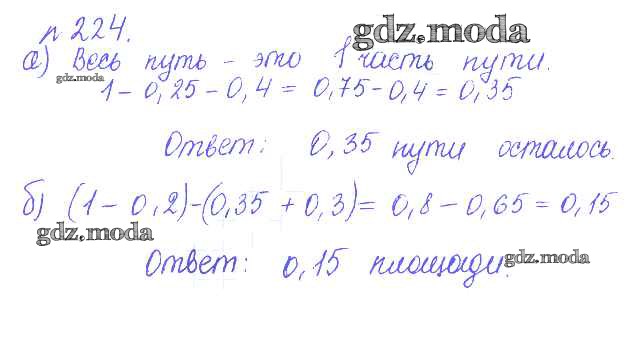 n 224.
gdz.moda
а) Весь путь - это 1 часть пути.
gdz.moda
1 - 0,25 - 0,4 = 0,75 - 0,4 = 0,35
Ответ: 0,35 пути осталось.
б) (1 - 0,2) - (0,35 + 0,3) = 0,8 - 0,65 = 0,15
gdz.moda
Ответ: 0,15 площади.
gdz.moda